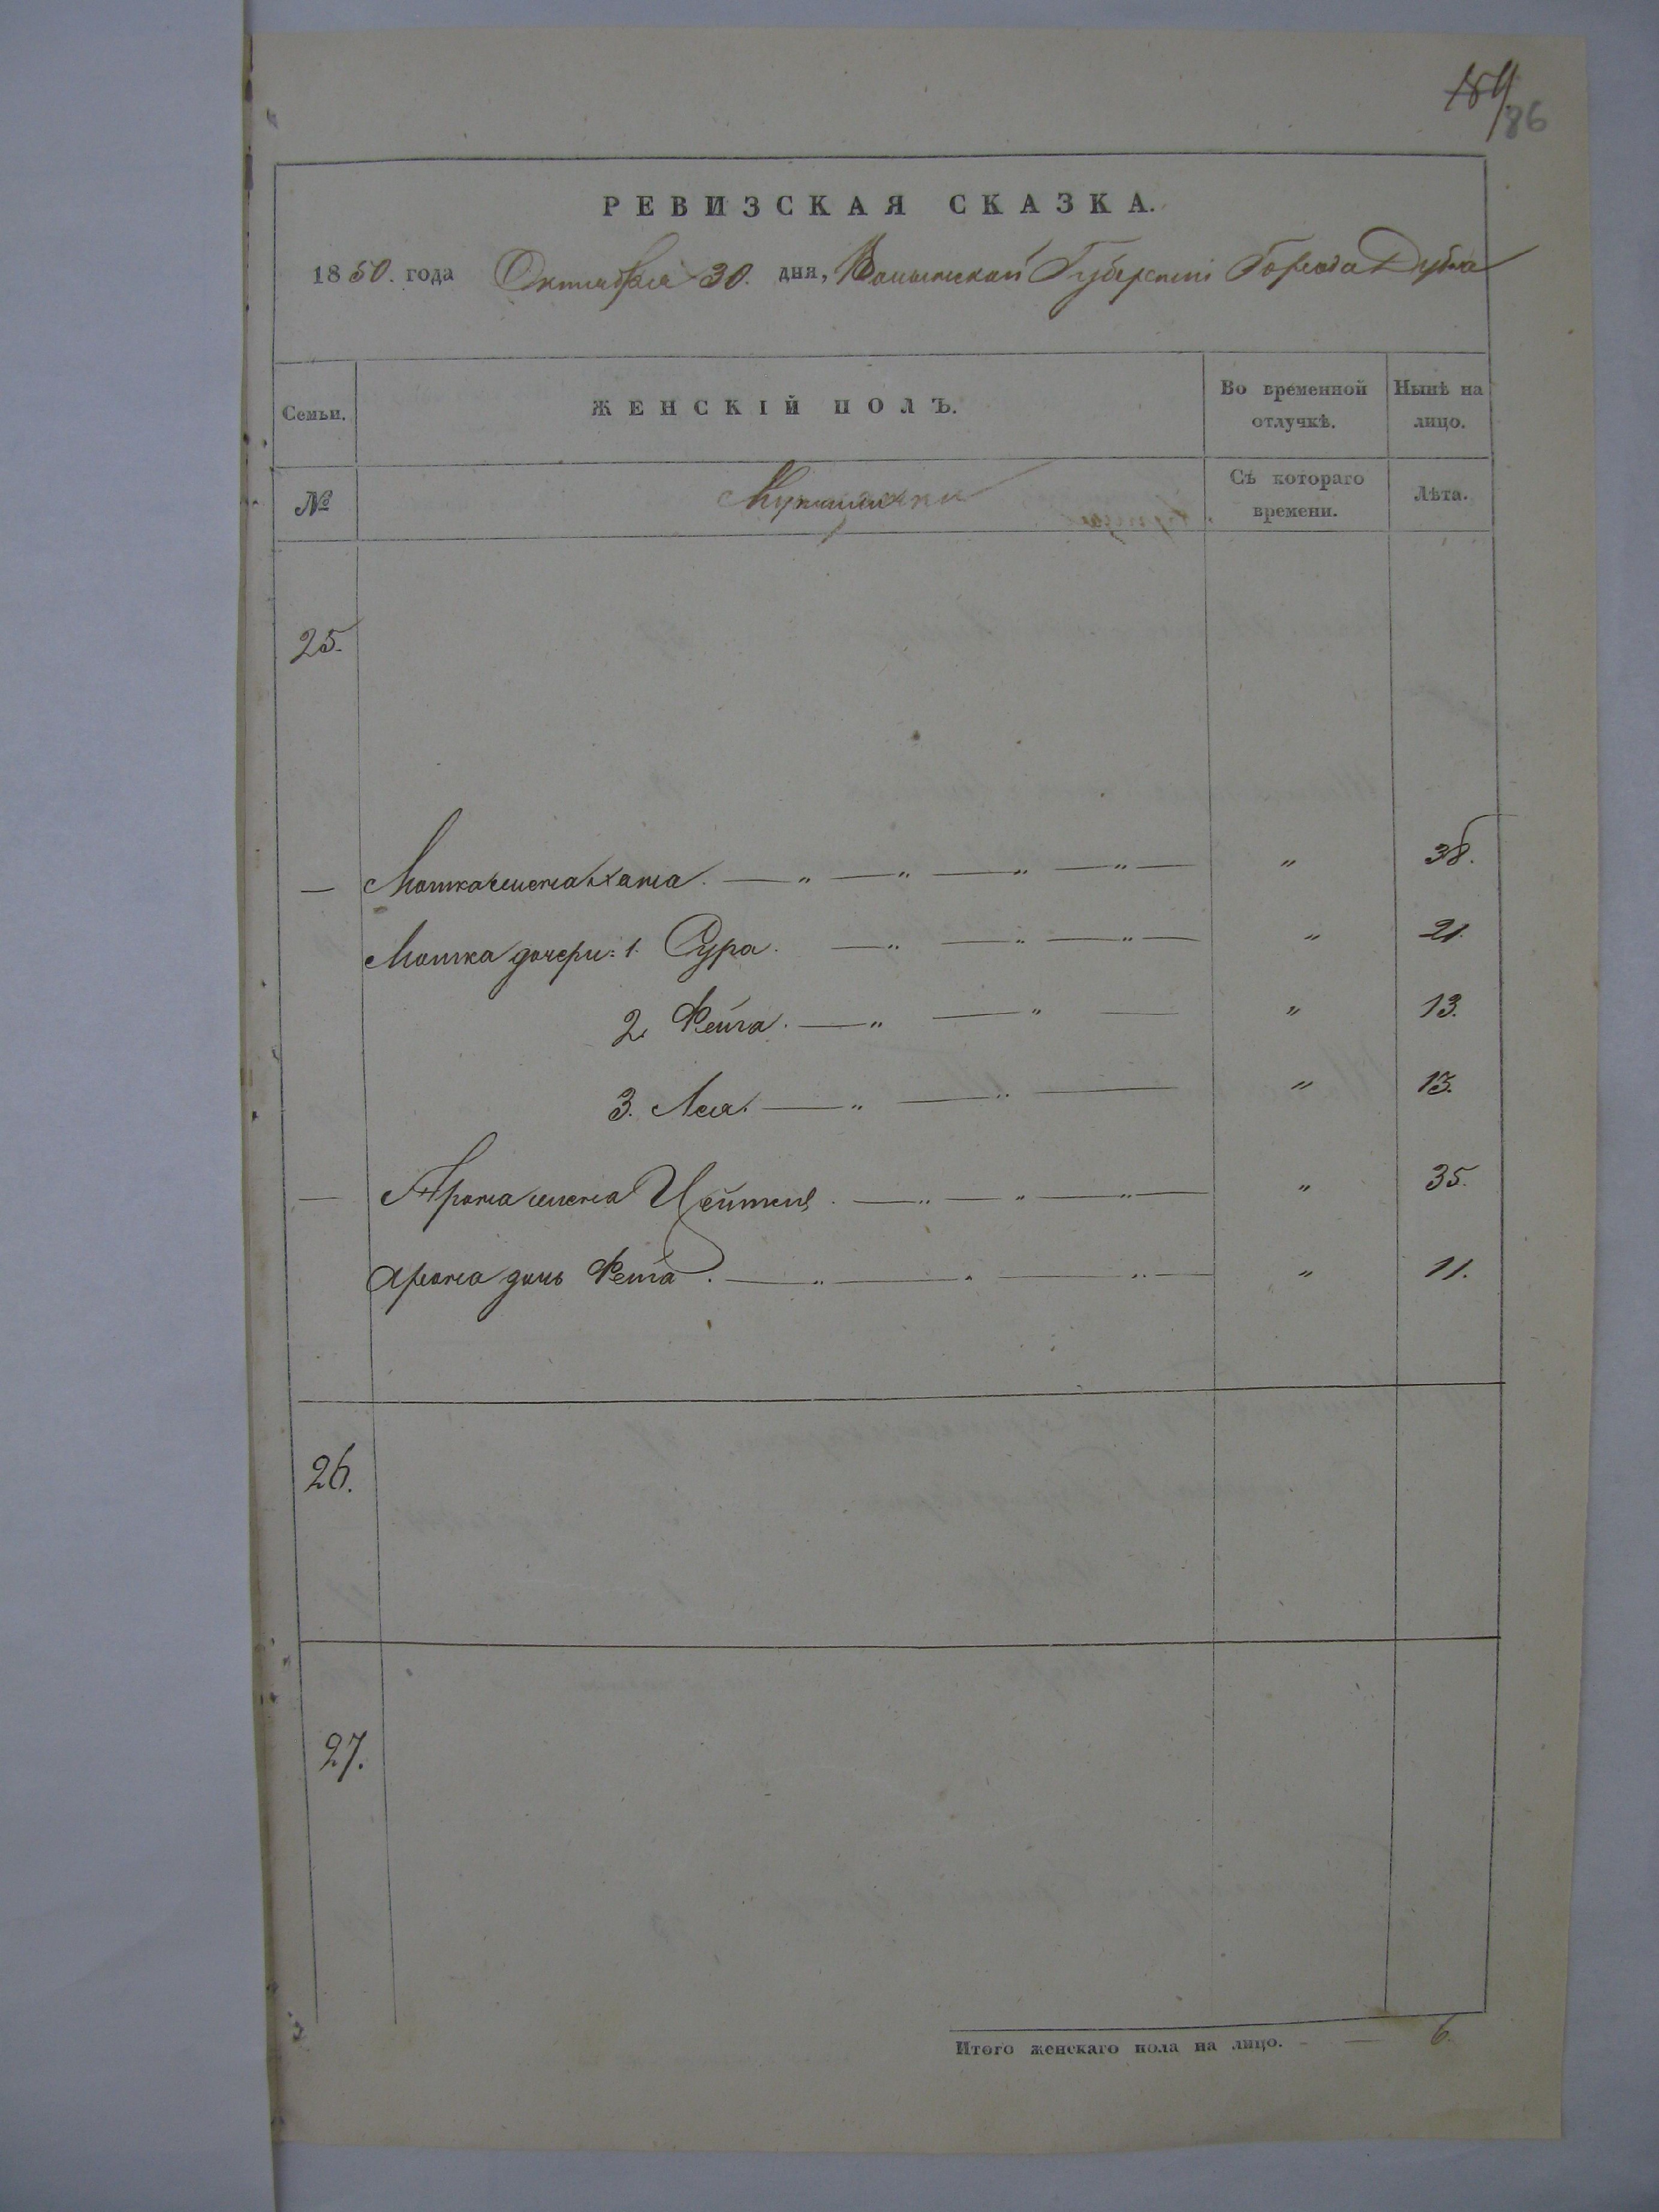 184
86
РЕВИЗСКАЯ СКАЗКА.
1850. года Октября 30. дня, Волынской Губерніи Города Дубна
Семьи. ЖЕНСКІЙ ПОЛЪ. Во временной отлучкѣ. Нынѣ на лицо.
№ Съ котораго времени. Лѣта.
25.
— Мошка жена Хана. — „ — „ — „ — „ — „ 38.
Мошка дочери: 1. Сура. — „ — „ — „ — „ 21.
2. Фейга. — „ — „ — „ 13.
3. Лея. — „ — „ — „ 13.
— Арона жена Цейтель. — „ — „ — „ — „ 35.
Арона дочь Фейга. — „ — „ — „ — „ 11.
26.
27.
Итого женскаго пола на лицо. — — 6.